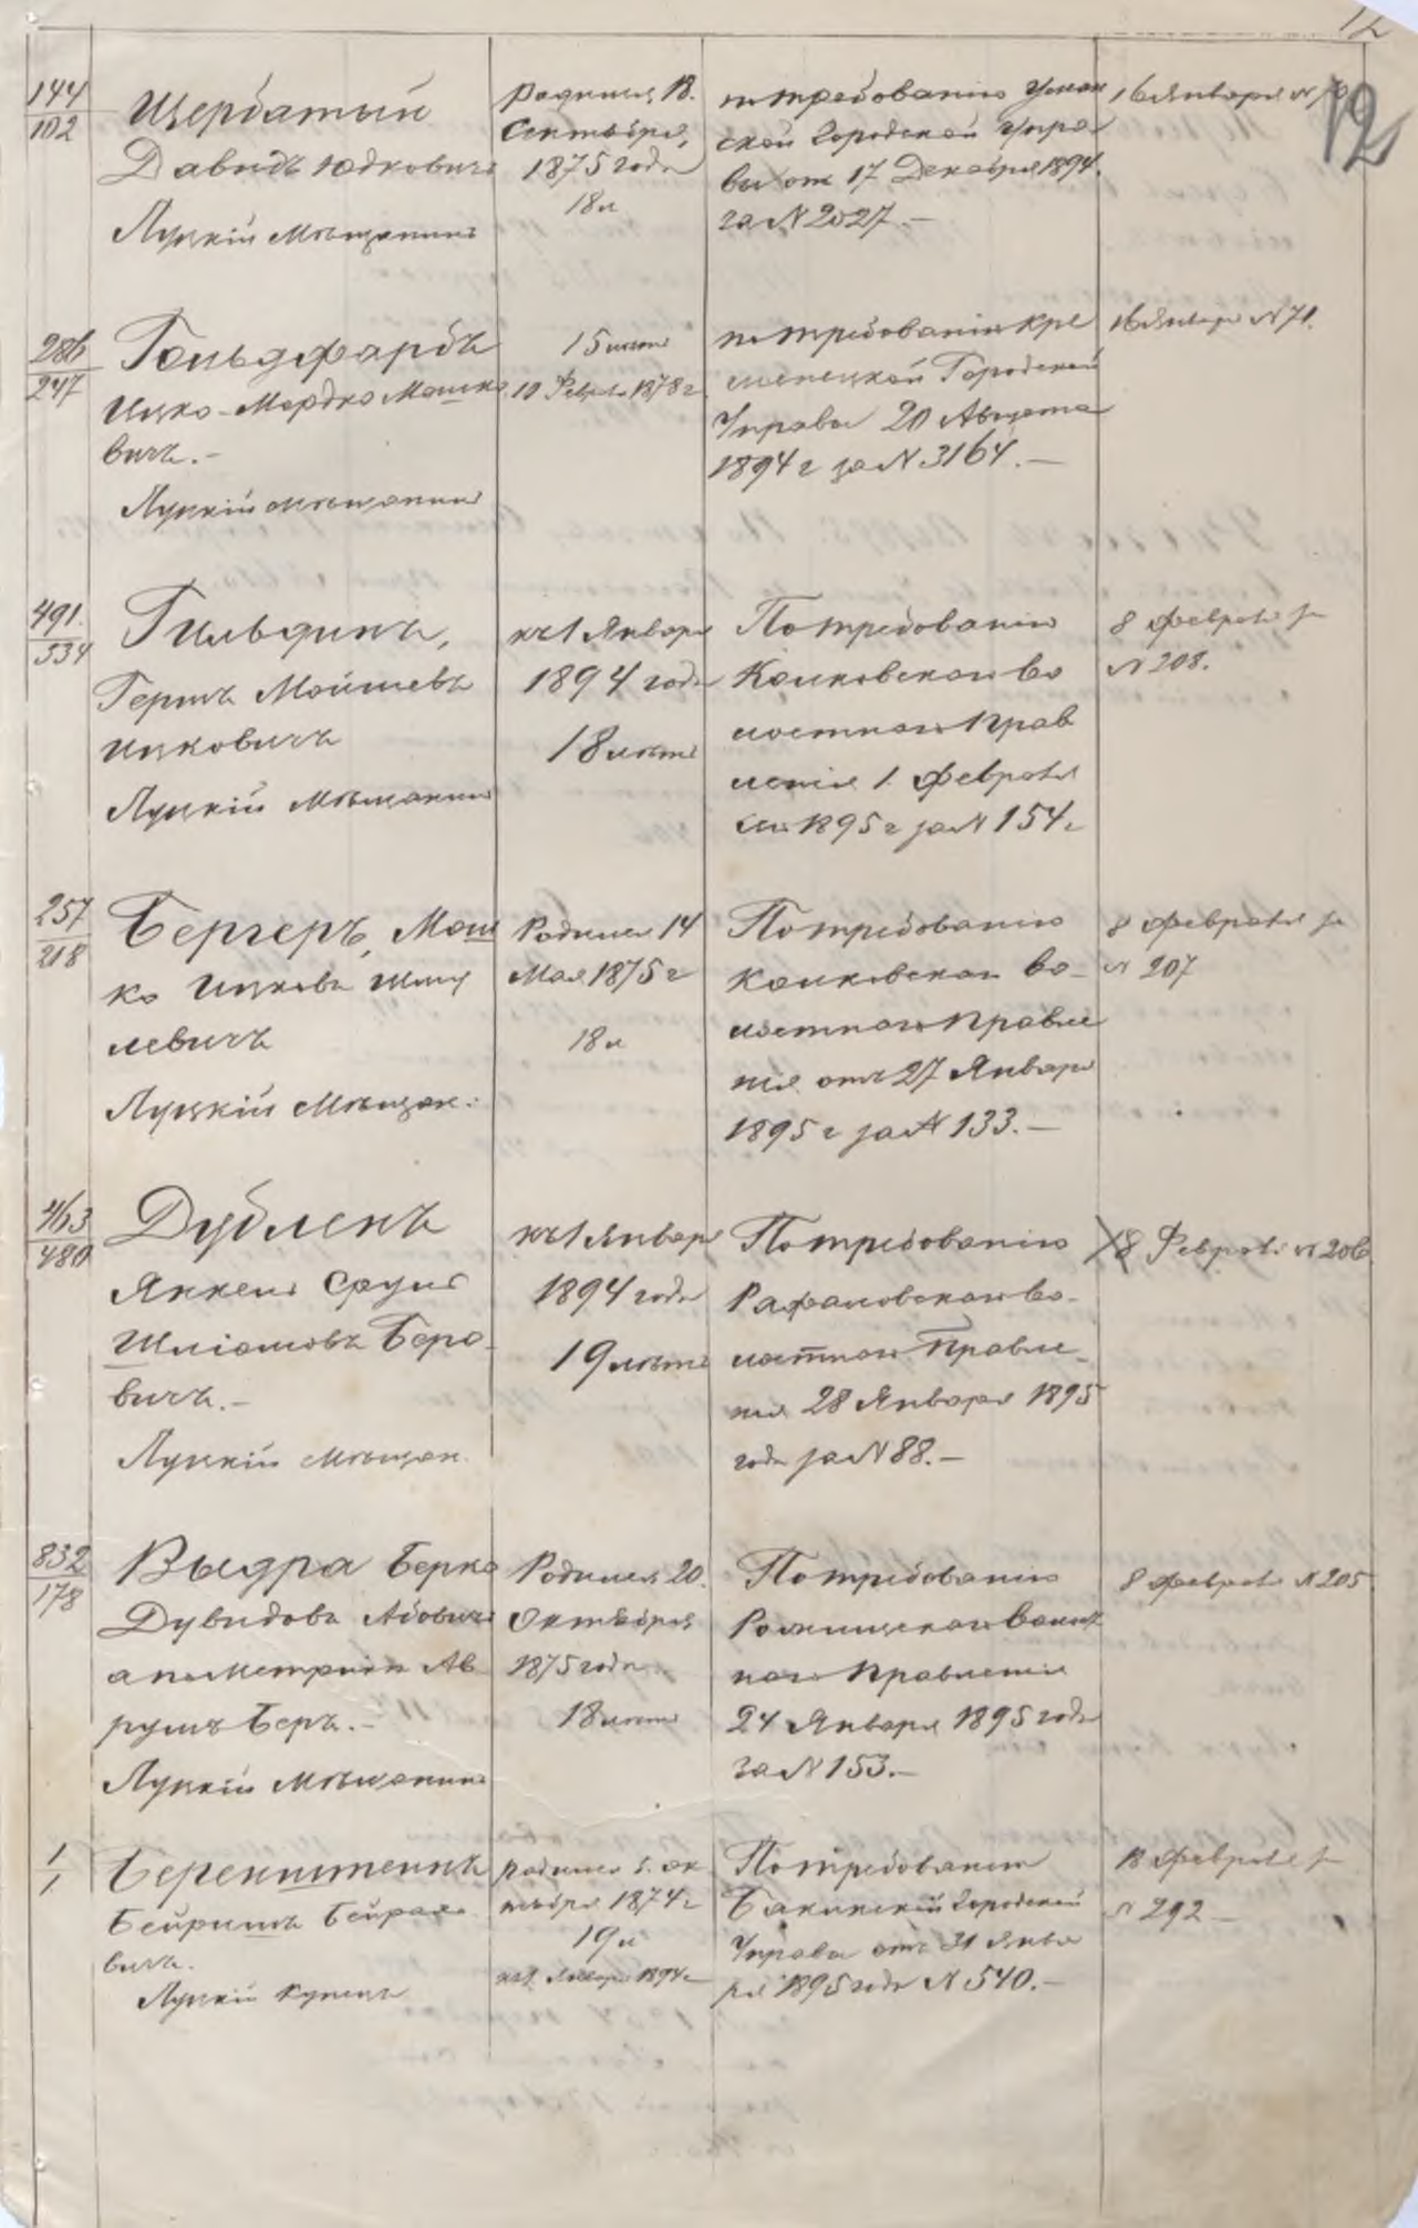 12
12
144
102
Щербатый
Давидъ Юдковичъ
Луцкій Мѣщанинъ
родился 18.
Сентября,
1875 года
18 л
по требованію Уман
ской Городской Упра
вы отъ 17 Декабря 1894.
за N 2027.—
16 Января N 70
286
247
Гольдфарбъ
Ицко-Мордко Мошко
вичъ.—
Луцкій мѣщанинъ
15 лѣтъ
10 Февраля 1878 г
по требованію Кре
менецкой Городской
Управы 20 Августа
1894 г за N 3164.—
16 Января N 71.
491.
534
Гильдинъ,
Гершъ Мойшевъ
Ицковичъ
Луцкій Мѣщанинъ
къ 1 Января
1894 года
18 лѣтъ
По требованію
Колковскаго Во
лостнаго Прав
ленія 1. Февраля
1895 г за N 154.
8 Февраля за
N 208.
257
218
Бергеръ, Мош
ко Ицковъ Шму
левичъ
Луцкій Мѣщан:
Родился 14
Мая 1875 г
18 л
По требованію
Колковскаго Во-
лостнаго Правле
нія отъ 27 Января
1895 г за N 133.—
8 Февраля за
N 207
463
480
Дублекъ
Янкель Сруль
Шліомовъ Беро-
вичъ.—
Луцкій Мѣщан.
къ 1 Января
1894 года
19 лѣтъ
По требованію
Рафаловскаго Во-
лостнаго Правле-
нія 28 Января 1895
года за N 88.—
8 Февраля N 206
832
178
Выдра Берко
Дувидовъ Абовичъ
а по Метрикѣ Ав
румъ Беръ.—
Луцкій Мѣщанинъ
Родился 20.
Октября
1875 года
18 лѣтъ
По требованію
Рожищскаго Волост
наго Правленія
24 Января 1895 года
за N 153.—
8 Февраля N 205
1
1
Беренштейнъ
Бейришъ Бейрахо
вичъ.
Луцкій Купецъ
родился 5. Ок
тября 1874 г
19 л
къ 1. Января 1894 г
По требованію
Бакинской Городской
Управы отъ 31 Янва
ря 1895 года N 540.—
18 Февраля за
N 292—